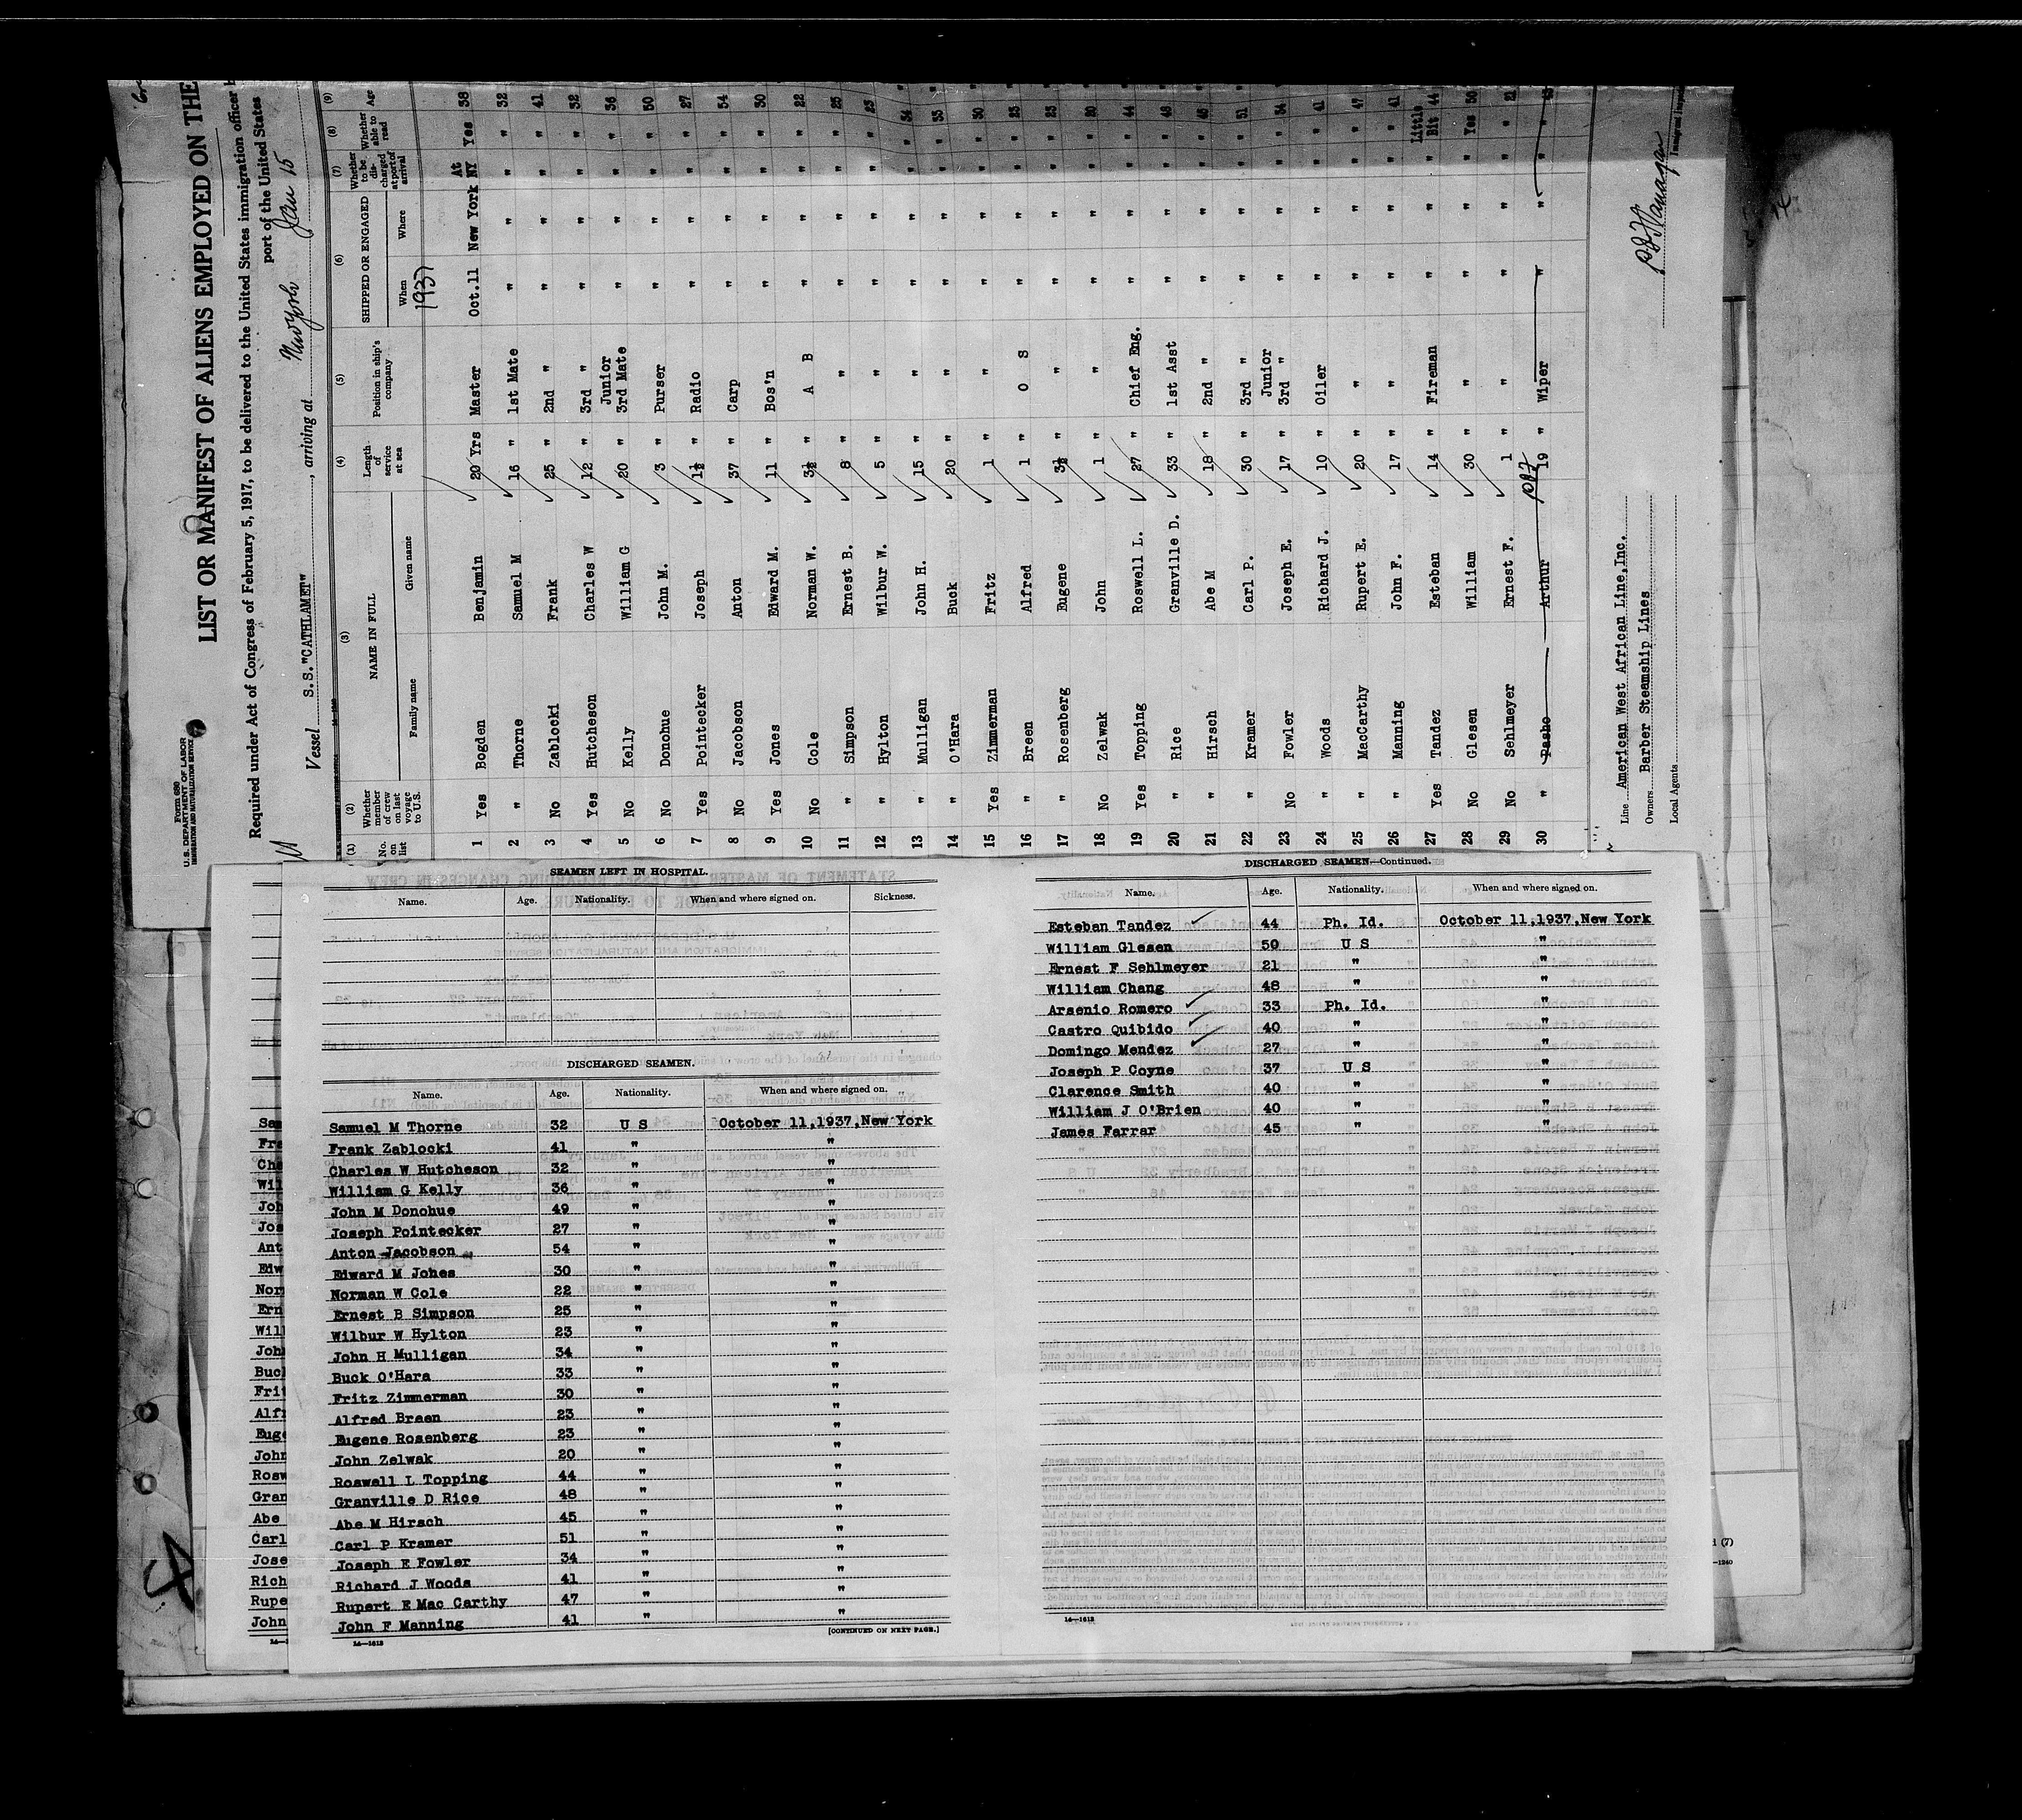 Form 680
U. S. DEPARTMENT OF LABOR
IMMIGRATION AND NATURALIZATION SERVICE
LIST OR MANIFEST OF ALIENS EMPLOYED ON THE
Required under Act of Congress of February 5, 1917, to be delivered to the United States immigration officer
port of the United States
Vessel S.S."CATHLAMET", arriving at New York Jan 15
(1) (2) (3) (4) (5) (6) (7) (8) (9)
No. on list Whether member of crew on last voyage to U.S. NAME IN FULL Family name Given name Length of service at sea Position in ship's company SHIPPED OR ENGAGED When Where Whether to be discharged at port of arrival Whether able to read Age
1937
1 Yes Bogden Benjamin 20 Yrs Master Oct.11 New York At NY Yes 38
2 " Thorne Samuel M 16 " 1st Mate " " " " 32
3 No Zablocki Frank 25 " 2nd " " " " " 41
4 Yes Hutcheson Charles W 12 " 3rd " " " " " 32
5 No Kelly William G 20 " Junior 3rd Mate " " " " 36
6 No Donohue John M. 3 " Purser " " " " 50
7 Yes Pointecker Joseph 1½ " Radio " " " " 27
8 No Jacobson Anton 37 " Carp " " " " 54
9 Yes Jones Edward M. 11 " Bos'n " " " " 30
10 No Cole Norman W. 3½ " A B " " " " 22
11 " Simpson Ernest B. 8 " " " " " " 25
12 " Hylton Wilbur W. 5 " " " " " " 23
13 " Mulligan John H. 15 " " " " " " 34
14 " O'Hara Buck 20 " " " " " " 33
15 Yes Zimmerman Fritz 1 " " " " " " 30
16 " Breen Alfred 1 " O S " " " " 23
17 " Rosenberg Eugene 3½ " " " " " " 23
18 No Zelwak John 1 " " " " " " 20
19 Yes Topping Roswell L. 27 " Chief Eng. " " " " 44
20 " Rice Granville D. 33 " 1st Asst " " " " 48
21 " Hirsch Abe M 18 " 2nd " " " " " 45
22 " Kramer Carl P. 30 " 3rd " " " " " 51
23 No Fowler Joseph E. 17 " Junior 3rd " " " " " 34
24 " Woods Richard J. 10 " Oiler " " " " 41
25 " MacCarthy Rupert E. 20 " " " " " " 47
26 " Manning John F. 17 " " " " " " 41
27 Yes Tandez Esteban 14 " Fireman " " " Little Bit 44
28 No Glesen William 30 " " " " " Yes 50
29 No Sehlmeyer Ernest F. 1 " " " " " " 21
30 " Pasho Arthur 19 " Wiper " " " "
Line American West African Line,Inc.
Owners Barber Steamship Lines
Local Agents
SEAMEN LEFT IN HOSPITAL.
Name. Age. Nationality. When and where signed on. Sickness.
DISCHARGED SEAMEN.
Name. Age. Nationality. When and where signed on.
Samuel M Thorne 32 U S October 11,1937,New York
Frank Zablocki 41 " "
Charles W Hutcheson 32 " "
William G Kelly 36 " "
John M Donohue 49 " "
Joseph Pointecker 27 " "
Anton Jacobson 54 " "
Edward M Jones 30 " "
Norman W Cole 22 " "
Ernest B Simpson 25 " "
Wilbur W Hylton 23 " "
John H Mulligan 34 " "
Buck O'Hara 33 " "
Fritz Zimmerman 30 " "
Alfred Breen 23 " "
Eugene Rosenberg 23 " "
John Zelwak 20 " "
Roswell L Topping 44 " "
Granville D Rice 48 " "
Abe M Hirsch 45 " "
Carl P Kramer 51 " "
Joseph E Fowler 34 " "
Richard J Woods 41 " "
Rupert E Mac Carthy 47 " "
John F Manning 41 " "
14—1613
[CONTINUED ON NEXT PAGE.]
DISCHARGED SEAMEN—Continued.
Name. Age. Nationality. When and where signed on.
Esteban Tandez 44 Ph. Id. October 11,1937,New York
William Glesen 50 U S "
Ernest F Sehlmeyer 21 " "
William Chang 48 " "
Arsenio Romero 33 Ph. Id. "
Castro Quibido 40 " "
Domingo Mendez 27 " "
Joseph P Coyne 37 U S "
Clarence Smith 40 " "
William J O'Brien 40 " "
James Farrar 45 " "
14—1613
Sam
Fra
Cha
Wil
Joh
Jos
Ant
Edw
Nor
Ern
Wil
Joh
Buc
Frit
Alf
Euge
John
Rosw
Gran
Abe
Carl
Jose
Rich
Rupe
John
(7)
—1240